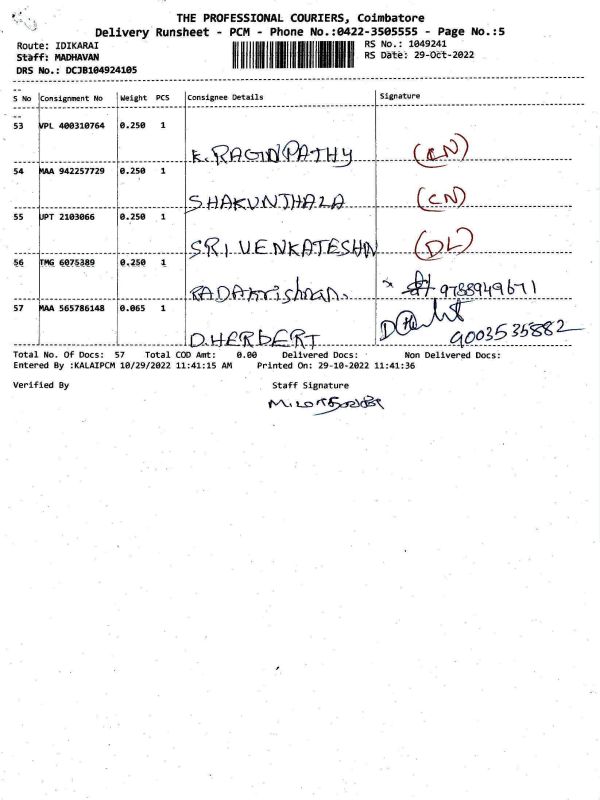 THE PROFESSIONAL COURIERS, Coimbatore
Delivery Runsheet - PCM - Phone No.:0422-3505555 - Page No.:5
Route: IDIKARAI RS No.: 1049241
Staff: MADHAVAN RS Date: 29-Oct-2022
DRS No.: DCJB104924105
S No Consignment No Weight PCS Consignee Details Signature
53 VPL 400310764 0.250 1
K. RAGINPATHY (CN)
54 MAA 942257729 0.250 1
SHAKUNTHALA (CN)
55 UPT 2103066 0.250 1
SRI VENKATESHN (DL)
56 TMG 6075389 0.250 1
RADAKrishnan. 9788949671
57 MAA 565786148 0.065 1
D.HERBERT 9003535882
Total No. Of Docs: 57 Total COD Amt: 0.00 Delivered Docs: Non Delivered Docs:
Entered By :KALAIPCM 10/29/2022 11:41:15 AM Printed On: 29-10-2022 11:41:36
Verified By Staff Signature